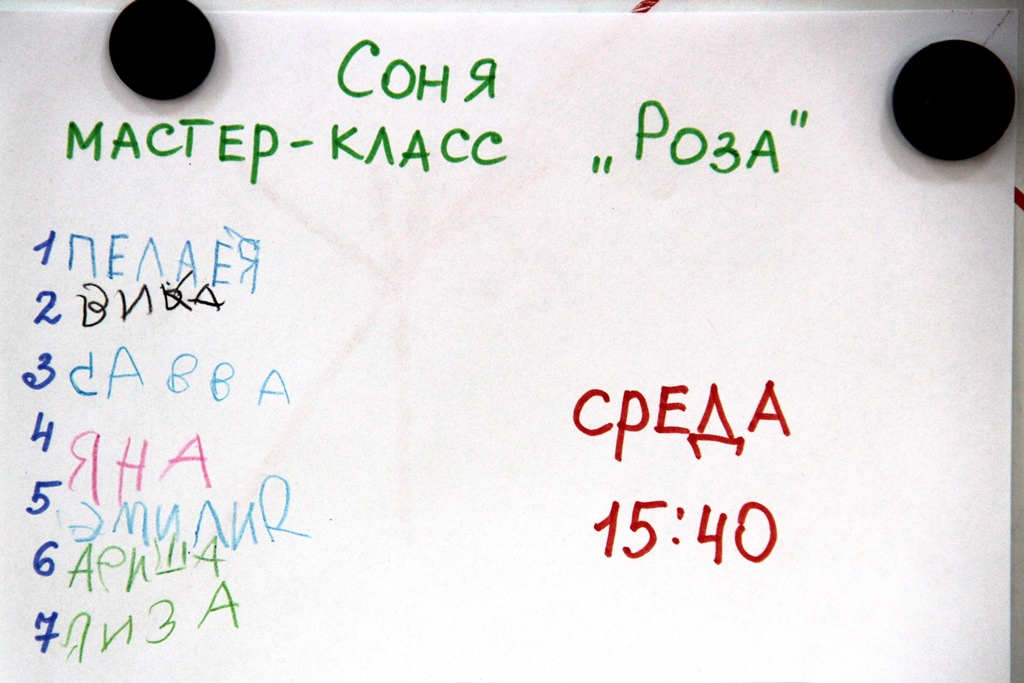 Соня
МАСТЕР-КЛАСС „РОЗА"
1 ПЕЛАЕЯ
2 ВИКА
3 САВВА
4 ЯНА
5 ЭМИЛИR
6 АРИША
7 ЛИЗА
СРЕДА
15:40